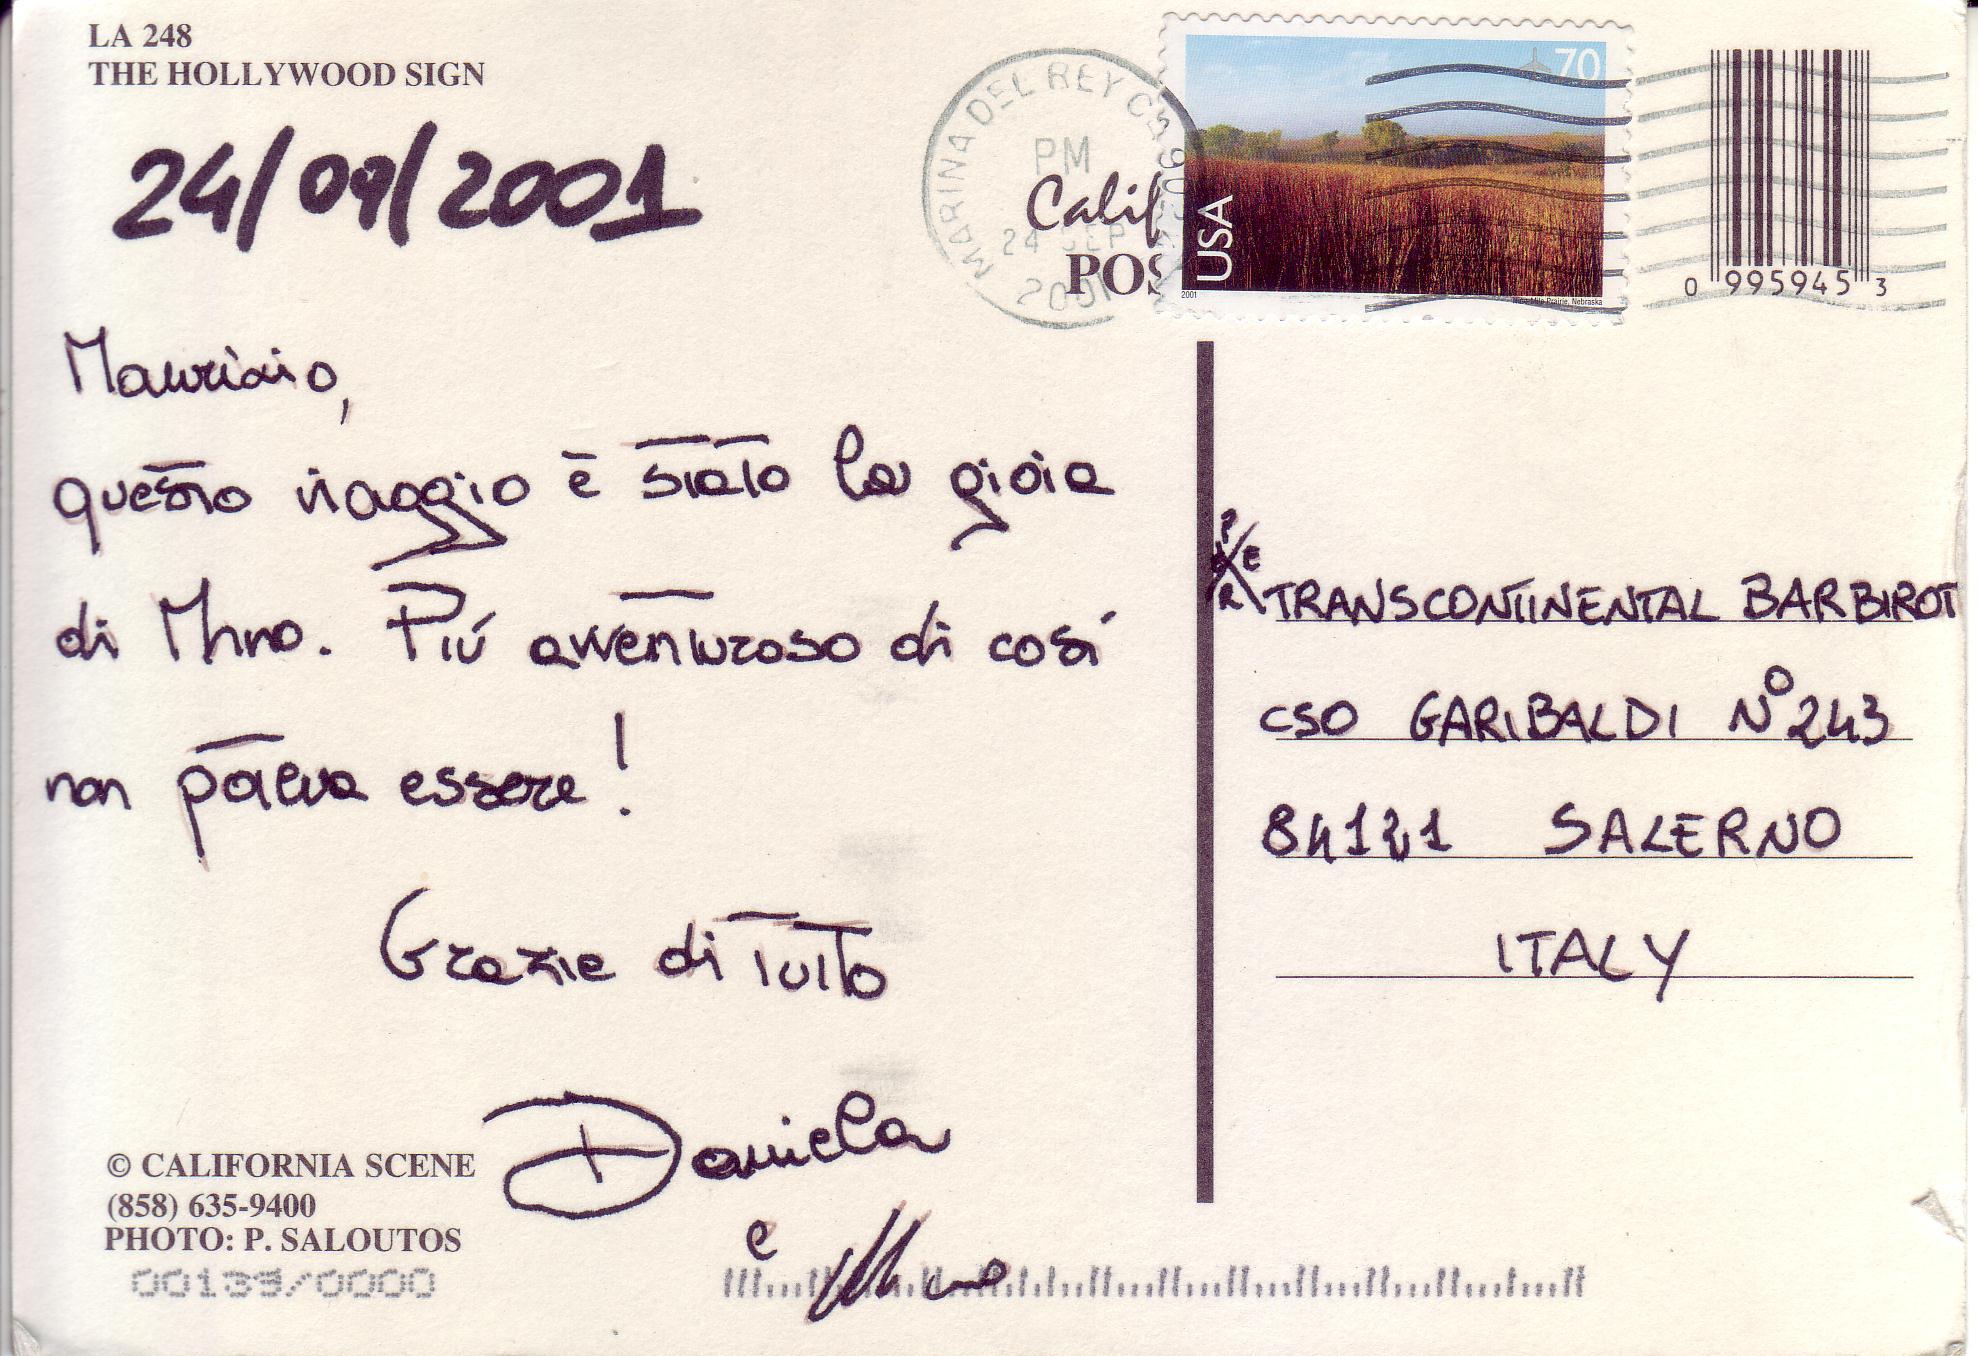 LA 248
THE HOLLYWOOD SIGN
24/09/2001
Maurizio,
questo viaggio è stato la gioia
di Mmo. Più avventuroso di così
non poteva essere!
Grazie di tutto
Daniela
e
© CALIFORNIA SCENE
(858) 635-9400
PHOTO: P. SALOUTOS
00133/0000
MARINA DEL REY CA 902
PM
24 SEP
2001
Calif
POS
70
USA
2001
Nine-Mile Prairie, Nebraska
0 995945 3
TRANSCONTINENTAL BARBIROT
CSO GARIBALDI N° 243
84121 SALERNO
ITALY